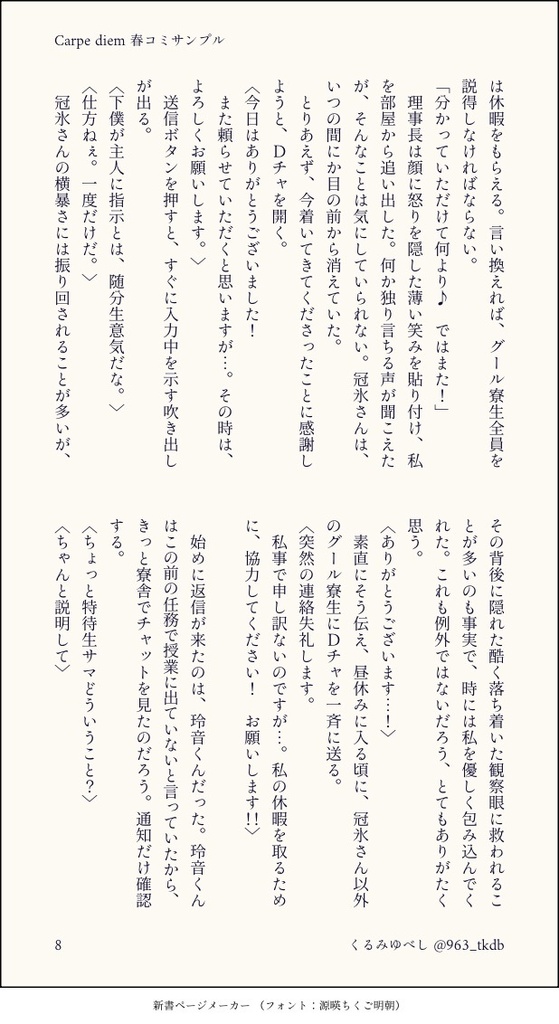 Carpe diem 春コミサンプル
は休暇をもらえる。言い換えれば、グール寮生全員を
説得しなければならない。
「分かっていただけて何より♪　ではまた！」
　理事長は顔に怒りを隠した薄い笑みを貼り付け、私
を部屋から追い出した。何か独り言ちる声が聞こえた
が、そんなことは気にしていられない。冠氷さんは、
いつの間にか目の前から消えていた。
　とりあえず、今着いてきてくださったことに感謝し
ようと、Dチャを開く。
〈今日はありがとうございました！
　また頼らせていただくと思いますが…。その時は、
よろしくお願いします。〉
　送信ボタンを押すと、すぐに入力中を示す吹き出し
が出る。
〈下僕が主人に指示とは、随分生意気だな。〉
〈仕方ねぇ。一度だけだ。〉
　冠氷さんの横暴さには振り回されることが多いが、
その背後に隠れた酷く落ち着いた観察眼に救われるこ
とが多いのも事実で、時には私を優しく包み込んでく
れた。これも例外ではないだろう、とてもありがたく
思う。
〈ありがとうございます…！〉
　素直にそう伝え、昼休みに入る頃に、冠氷さん以外
のグール寮生にDチャを一斉に送る。
〈突然の連絡失礼します。
　私事で申し訳ないのですが…。私の休暇を取るため
に、協力してください！　お願いします!!〉
　始めに返信が来たのは、玲音くんだった。玲音くん
はこの前の任務で授業に出ていないと言っていたから、
きっと寮舎でチャットを見たのだろう。通知だけ確認
する。
〈ちょっと特待生サマどういうこと？〉
〈ちゃんと説明して〉
8
くるみゆべし @963_tkdb
新書ページメーカー （フォント：源暎ちくご明朝）